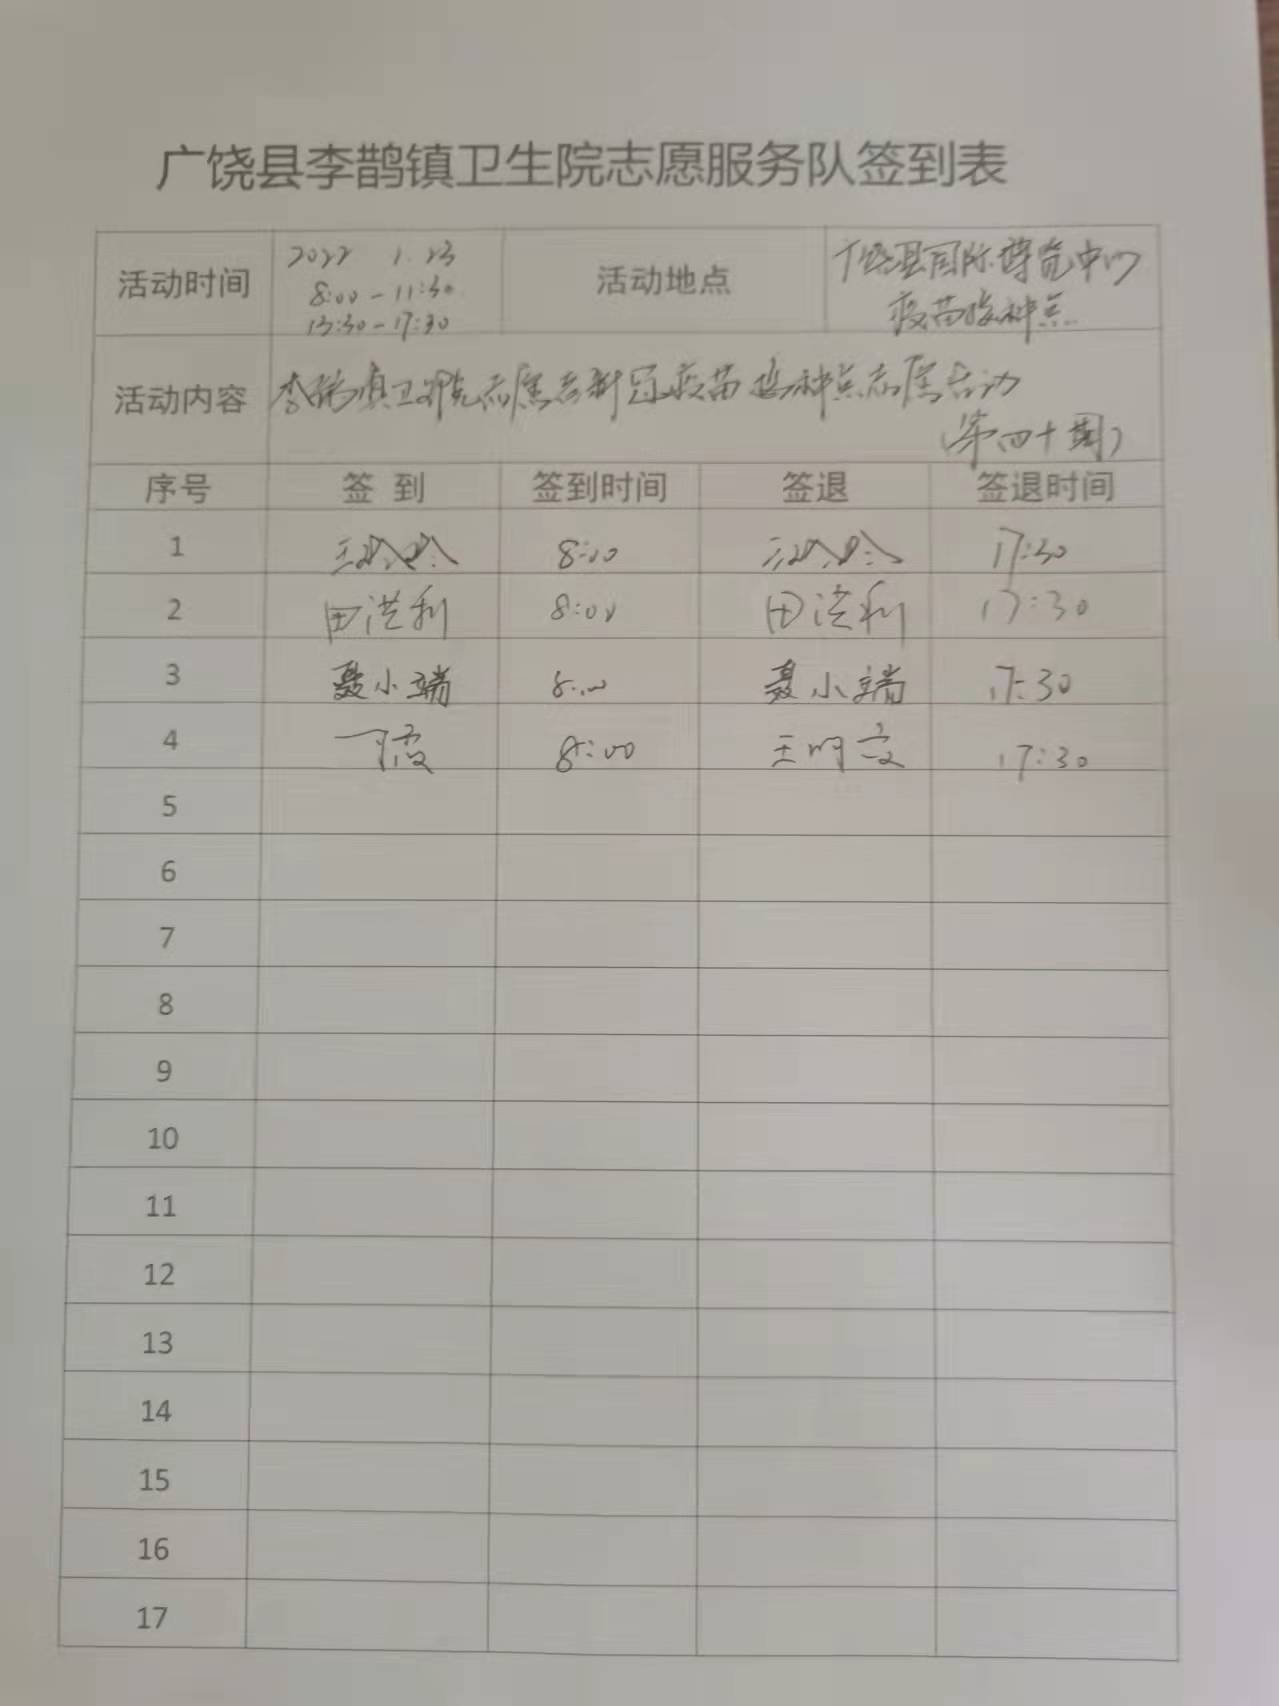 广饶县李鹊镇卫生院志愿服务队签到表
活动时间
2022 1.23
8:00-11:30
13:30-17:30
活动地点
广饶县国际博览中心
疫苗接种点
活动内容
李鹊镇卫生院志愿者新冠疫苗接种点志愿活动
(第四十期)
序号 签到 签到时间 签退 签退时间
1 8:00 17:30
2 田洪利 8:00 田洪利 17:30
3 聂小端 8:00 聂小端 17:30
4 8:00 17:30
5
6
7
8
9
10
11
12
13
14
15
16
17